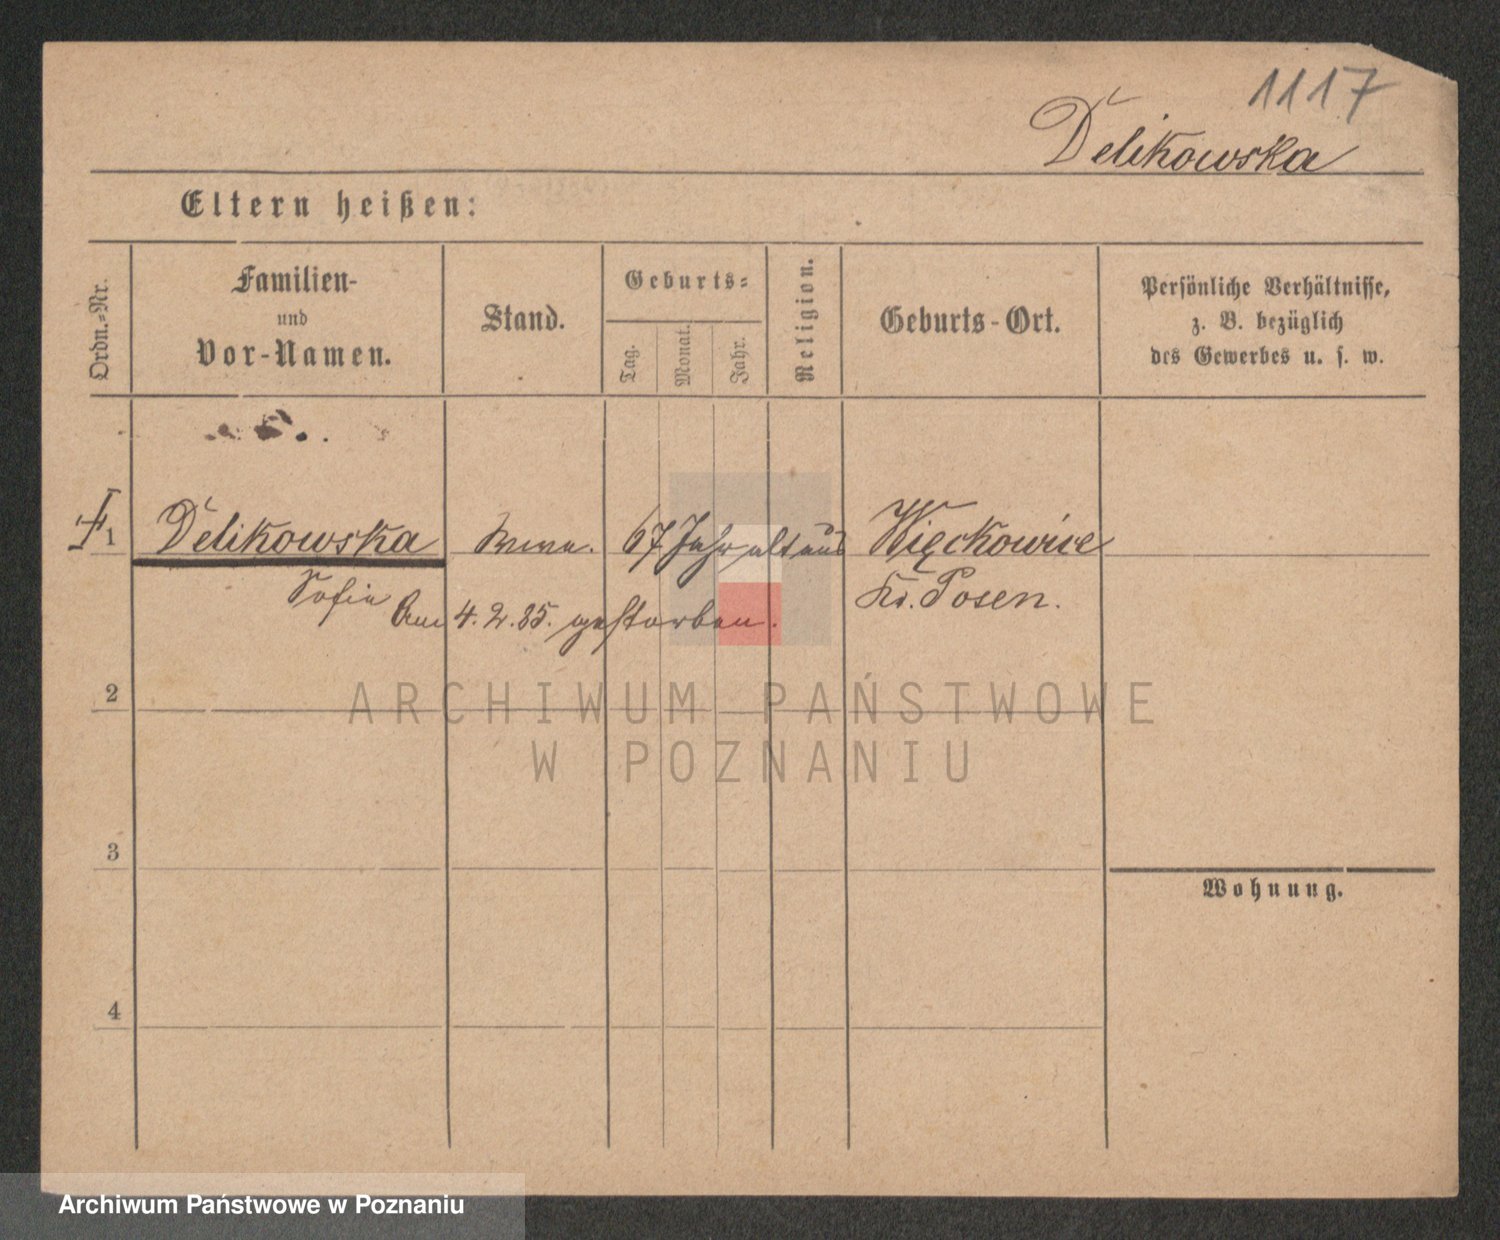 1117
Delikowska
Eltern heißen:
Ordn.-Nr.
Familien-
und
Vor-Namen.
Stand.
Geburts-
Tag.
Monat.
Jahr.
Religion.
Geburts-Ort.
Persönliche Verhältnisse,
z. B. bezüglich
des Gewerbes u. s. w.
1 Delikowska 67 Jahr alt aus Więckowice
Sofie Kr. Posen.
Am 4.2.85. gestorben.
2
ARCHIWUM PAŃSTWOWE
W POZNANIU
3
Wohnung.
4
Archiwum Państwowe w Poznaniu